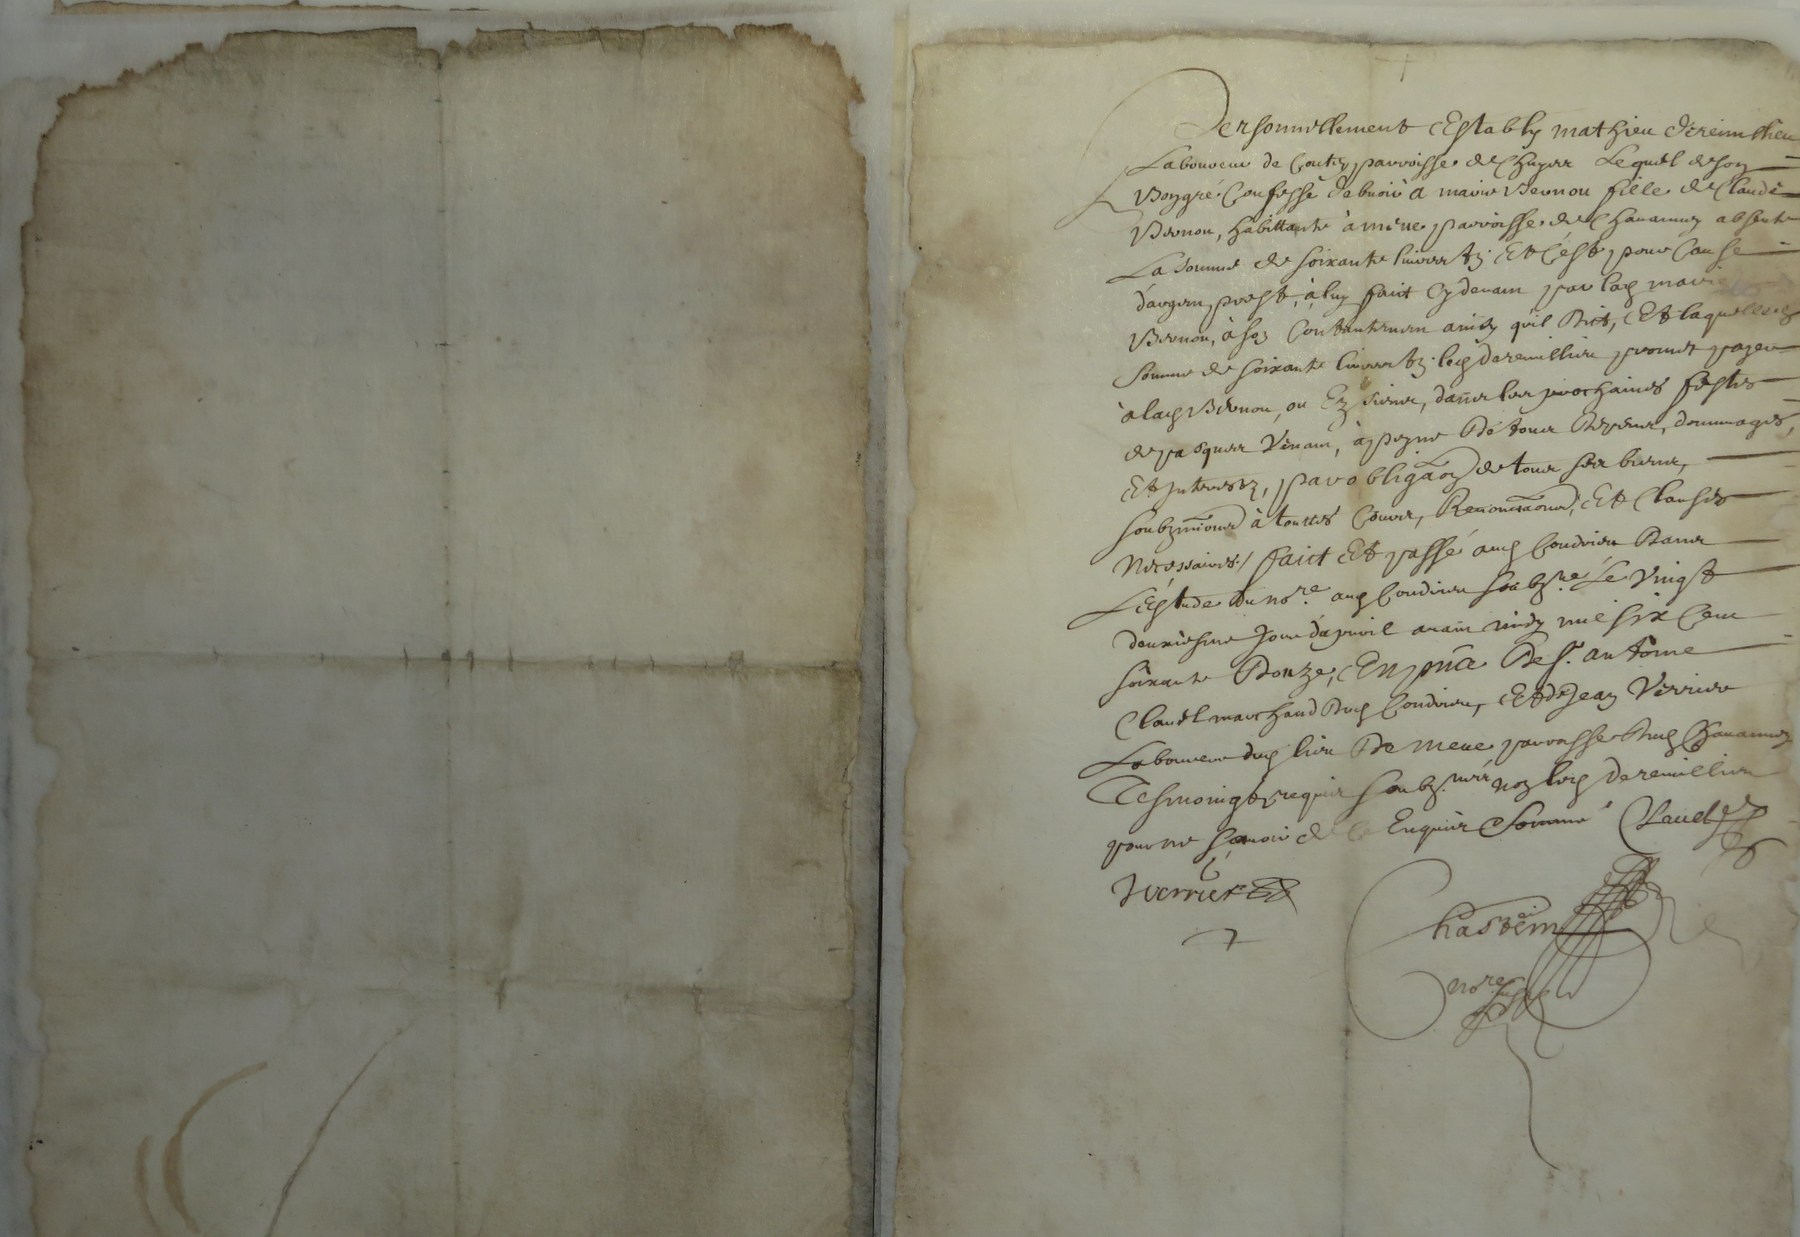 Personnellement Estably mathieu
Laboureur de parroisse de Chuyer Lequel de son
Bongré Confesse debvoir a marie Bernou fille de Claude
Bernou, habittante à parroisse de Chavannay absente
La somme de soixante livres tz. Et C'est pour Cause
d'argent prest, à luy faict Cy devant par lad marie
Bernou, à son Contantement ainsy qu'il dict, Et laquelle
somme de soixante livres tz. led Deremillieu promet payer
à lad Bernou, ou Ez siens, dans les prochaines festes
de pasques Venant, à peyne de tous despens, dommages,
Et Interestz, par obligãon de tous ses biens,
soubzmions à touttes Cours, Renonciaons, Et Clauses
Necessaires / faict Et passé aud Condrieu dans
L'Estude du nore. aud Condrieu soubzne. Le Vingt
deuxiesme Jour d'apvril avant midy mil six Cent
soixante Douze, En pñce de Sr. anthoine
Claudel marchand dud Condrieu, Et de Jean Verrier
Laboureur dud lieu de parroisse dud Chavannay
Tesmoingtz requis soubz.nés non led Deremillieu
pour ne sçavoir de ce Enquis Et Sommé Claudel
J verrier
Chastein
nore